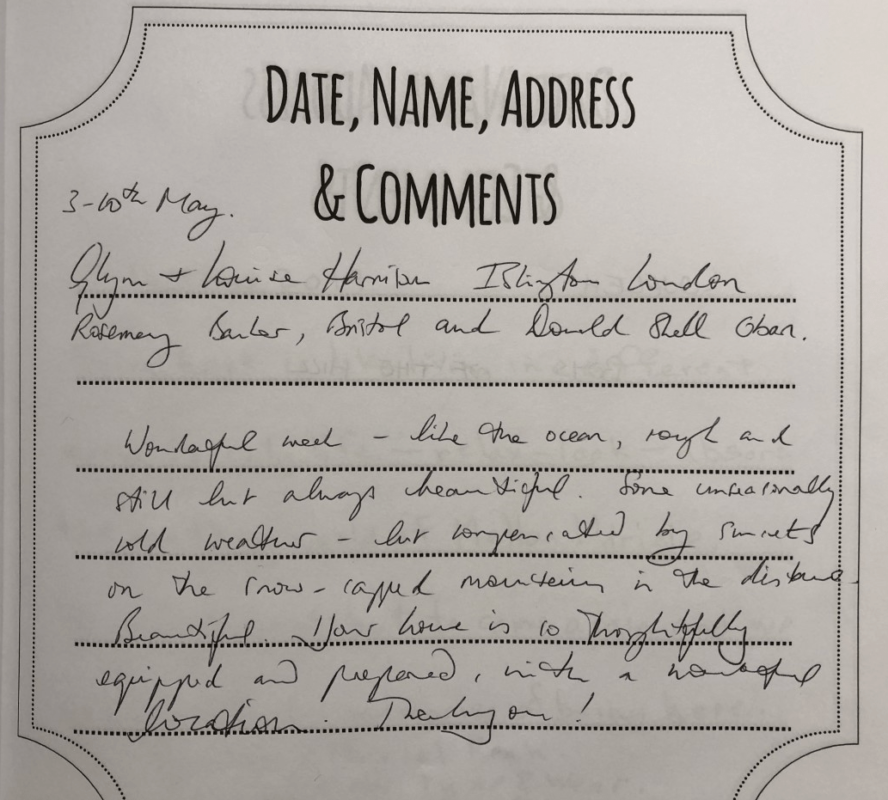 DATE, NAME, ADDRESS
& COMMENTS
3-10th May.
Glynn + Louise Harrison Islington London
Rosemary Barker, Bristol and Donald Shell Oban.
Wonderful week - like the ocean, rough and
still but always beautiful. Some unseasonally
cold weather - but compensated by sunsets
on the snow-capped mountains in the distance.
Beautiful. Your house is so thoughtfully
equipped and prepared, with a wonderful
location. Thank you!